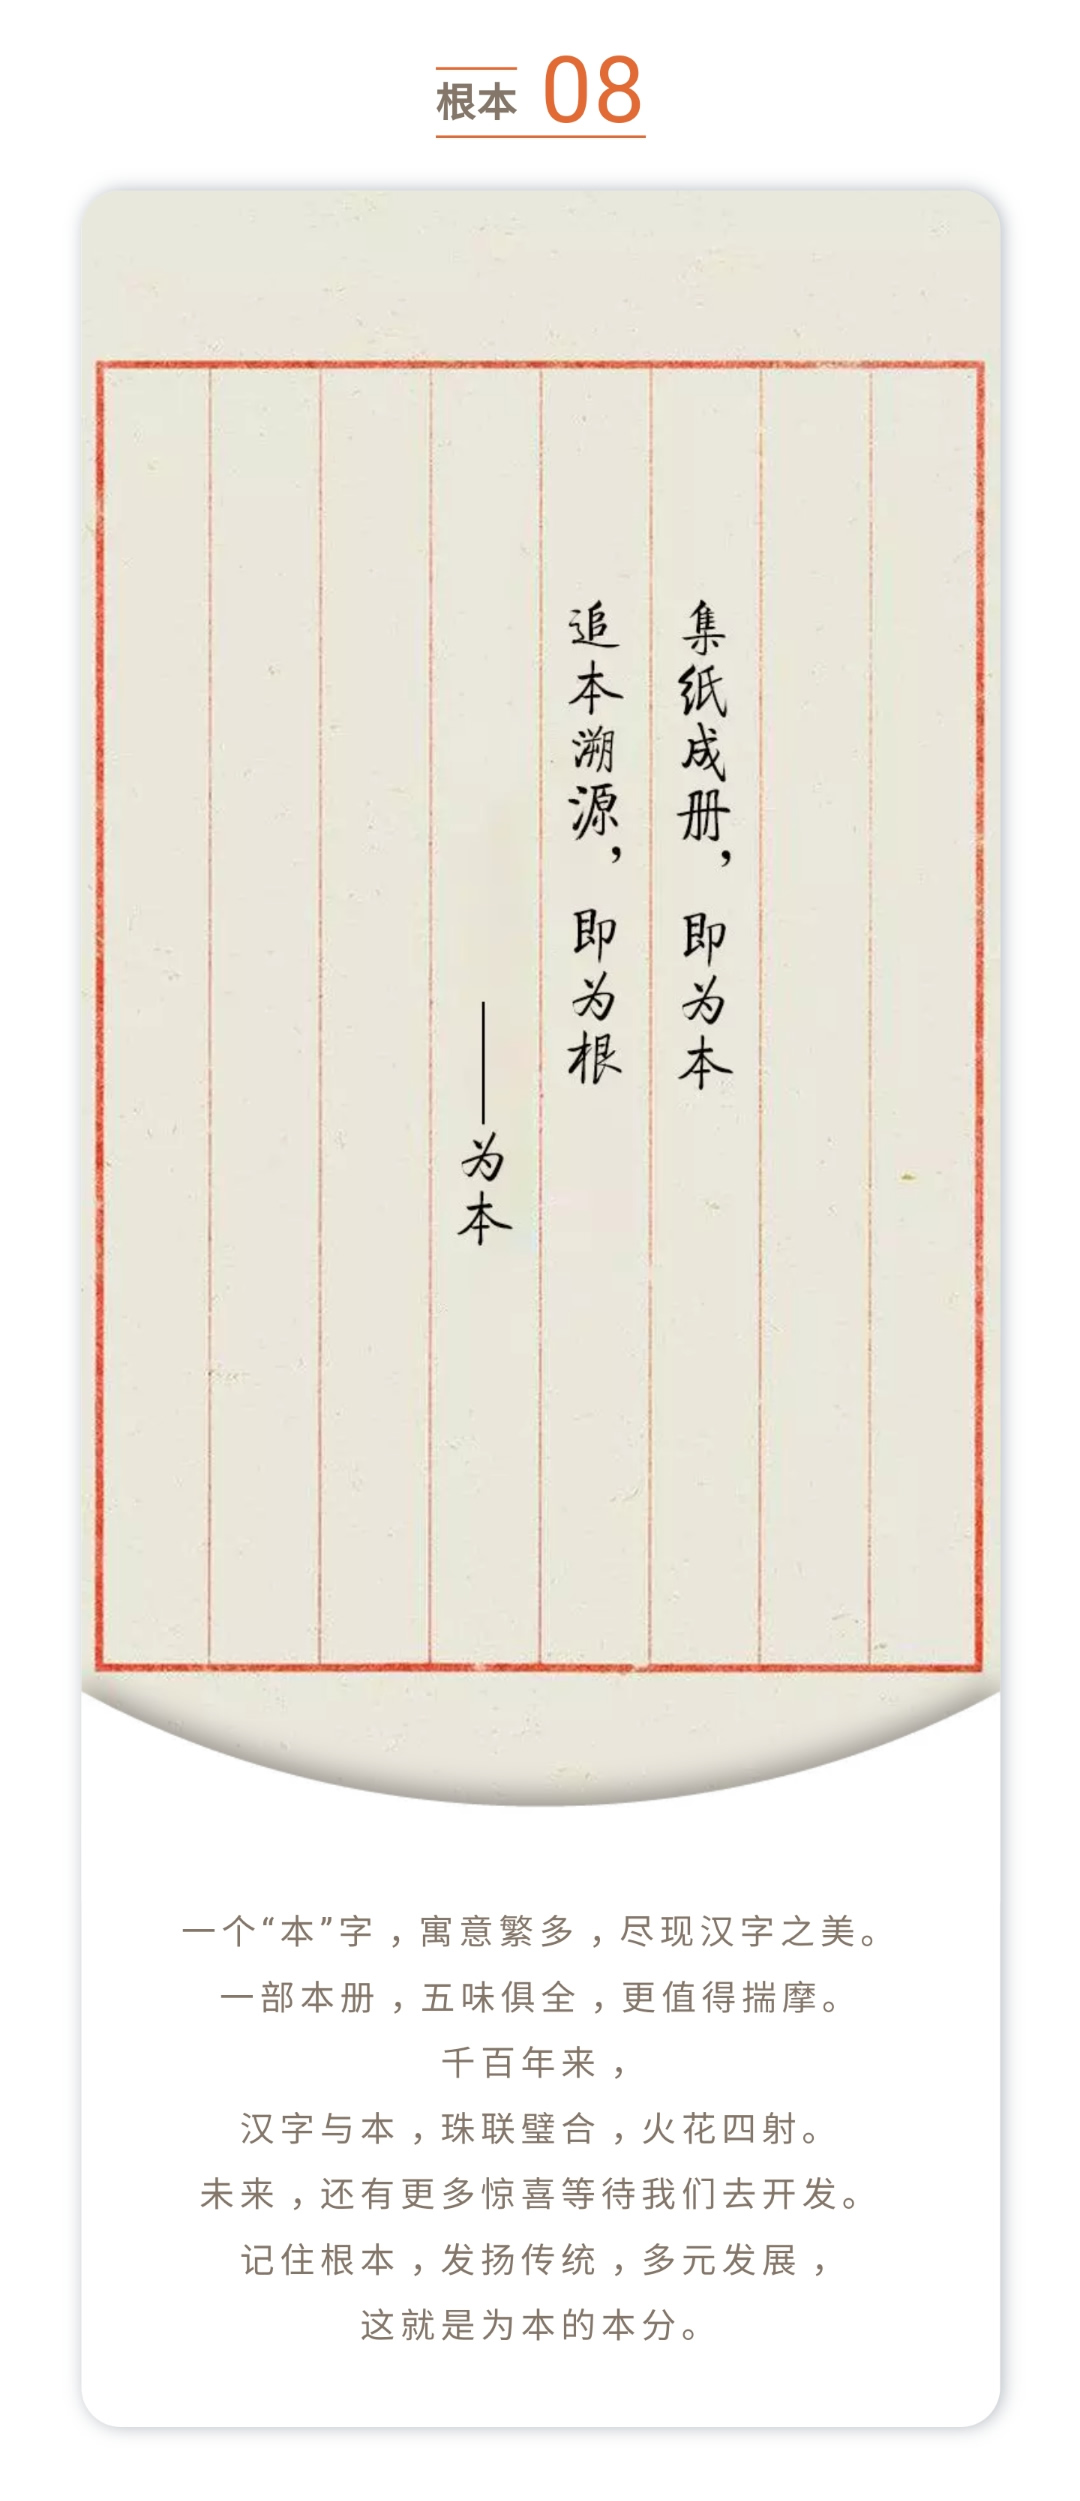 根本 08
集纸成册，即为本
追本溯源，即为根
——为本
一个“本”字，寓意繁多，尽现汉字之美。
一部本册，五味俱全，更值得揣摩。
千百年来，
汉字与本，珠联璧合，火花四射。
未来，还有更多惊喜等待我们去开发。
记住根本，发扬传统，多元发展，
这就是为本的本分。